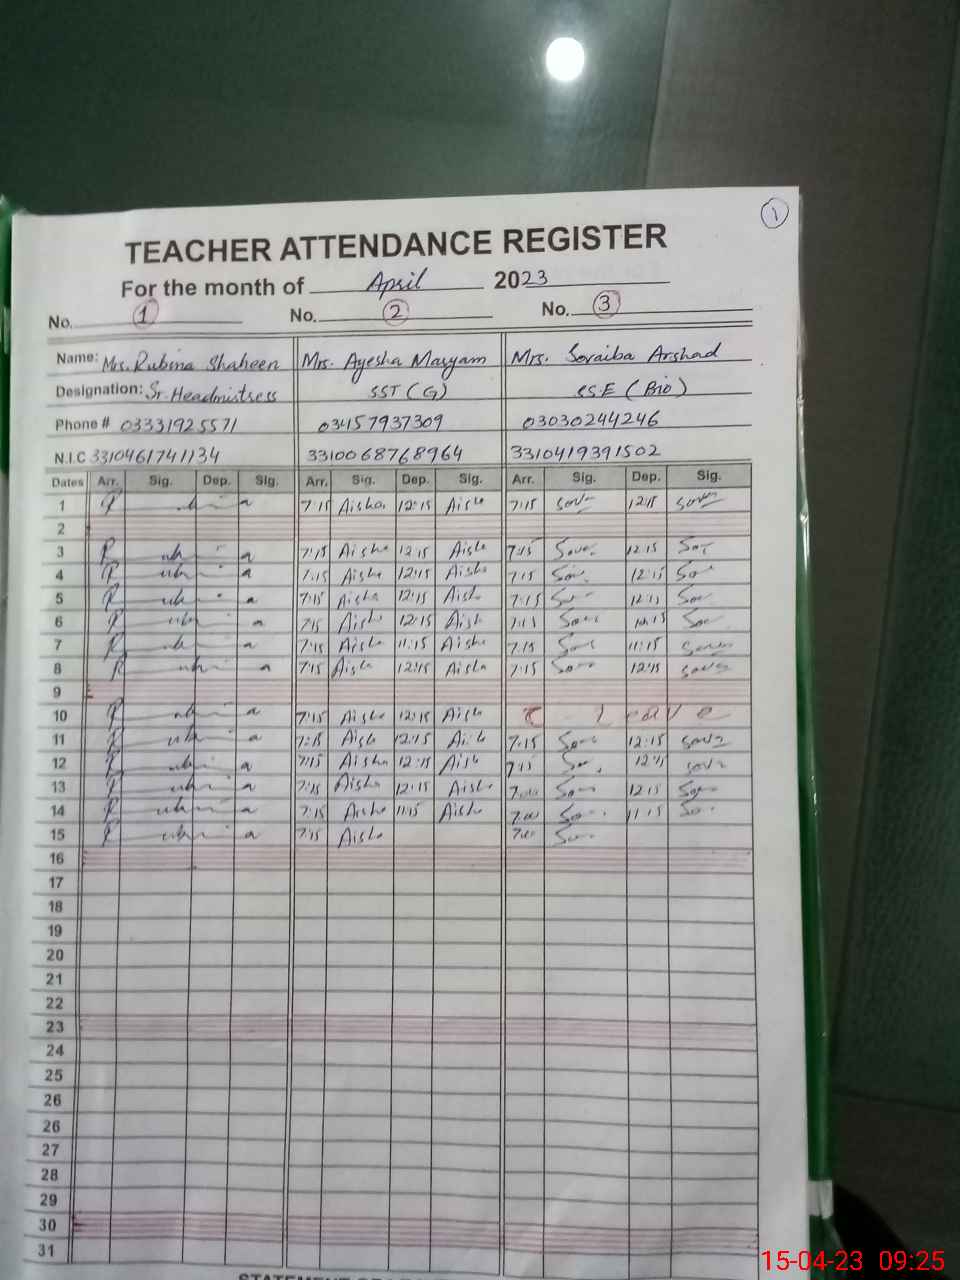 1
TEACHER ATTENDANCE REGISTER
For the month of April 2023
No. 1 No. 2 No. 3
Name: Mrs. Rubina Shaheen Mrs. Ayesha Maryam Mrs. Soraiba Arshad
Designation: Sr. Headmistress SST (G) ESE (Bio)
Phone # 03331925571 03457937309 03030244246
N.I.C 3310461741134 3310068768964 3310419391502
Dates Arr. Sig. Dep. Sig. Arr. Sig. Dep. Sig. Arr. Sig. Dep. Sig.
1 7:15 Aisha 12:15 Aisha 7:15 12:15
2
3 7:15 Aisha 12:15 Aisha 7:15 12:15
4 7:15 Aisha 12:15 Aisha 7:15 12:15
5 7:15 Aisha 12:15 Aisha 7:15
6 7:15 Aisha 12:15 Aisha
7 7:15 Aisha 11:15 Aisha 7:15 11:15
8 7:15 Aisha 12:15 Aisha 7:15 12:15
9
10 7:15 Aisha 12:15 Aisha Leave
11 7:15 Aisha 12:15 Aisha 7:15 12:15
12 7:15 Aisha 12:15 Aisha 7:15 12:15
13 7:15 Aisha 12:15 Aisha 7:00 12:15
14 7:15 Aisha 11:15 Aisha 7:00 11:15
15 7:15 Aisha 7:00
16
17
18
19
20
21
22
23
24
25
26
26
27
28
29
30
31
15-04-23 09:25